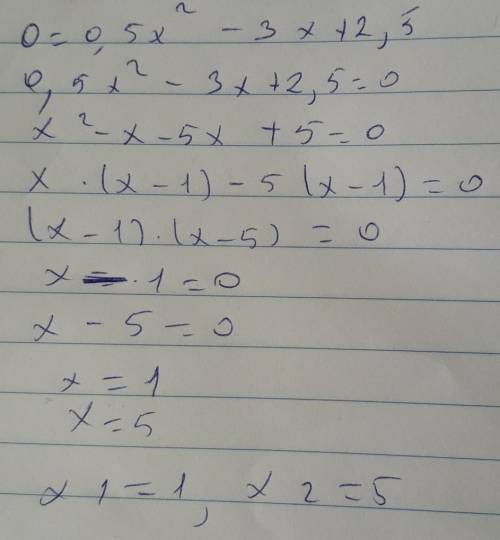 0 = 0,5x² - 3x + 2,5
0,5x² - 3x + 2,5 = 0
x² - x - 5x + 5 = 0
x · (x - 1) - 5 (x - 1) = 0
(x - 1) · (x - 5) = 0
x - 1 = 0
x - 5 = 0
x = 1
x = 5
x 1 = 1, x 2 = 5